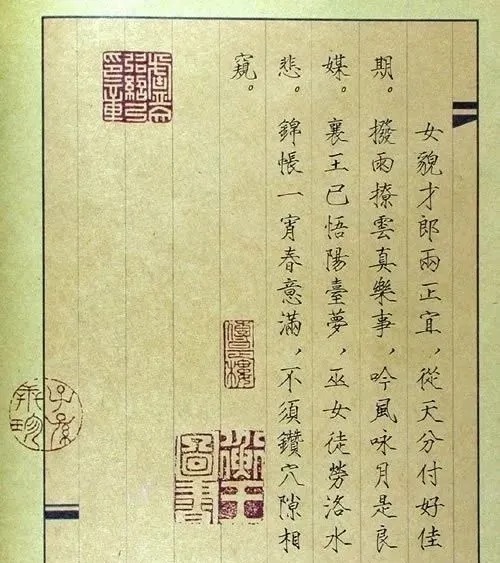 女貌才郎兩正宜，從天分付好佳
期。撥雨撩雲真樂事，吟風咏月是良
媒。襄王已悟陽臺夢，巫女徒勞洛水
悲。錦帳一宵春意滿，不須鑽穴隙相
窺。
衡王
圖書